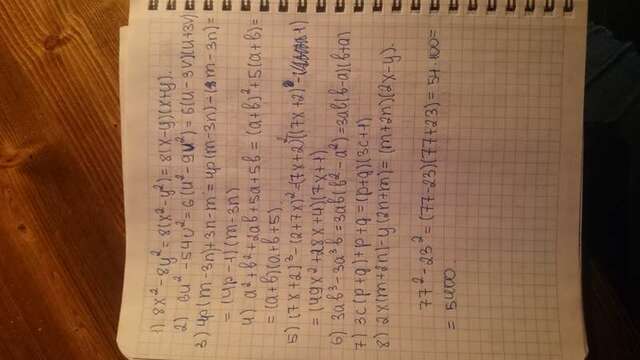 1) 8x² - 8y² = 8(x² - y²) = 8(x-y)(x+y).
2) 6u² - 54v² = 6(u² - 9v²) = 6(u-3v)(u+3v)
3) 4p(m-3n)+3n-m = 4p(m-3n)-(m-3n) =
= (4p-1)(m-3n)
4) a²+b²+2ab+5a+5b = (a+b)²+5(a+b) =
= (a+b)(a+b+5).
5) (7x+2)³ - (2+7x)² = (7x+2)²(7x+2)
= (49x²+28x+4)(7x+1)
6) 3ab³ - 3a³b = 3ab(b²-a²) = 3ab(b-a)(b+a)
7) 3c(p+q)+p+q = (p+q)(3c+1)
8) 2x(m+2n)-y(2n+m) = (m+2n)(2x-y).
77² - 23² = (77-23)(77+23) = 54·100 =
= 5400.